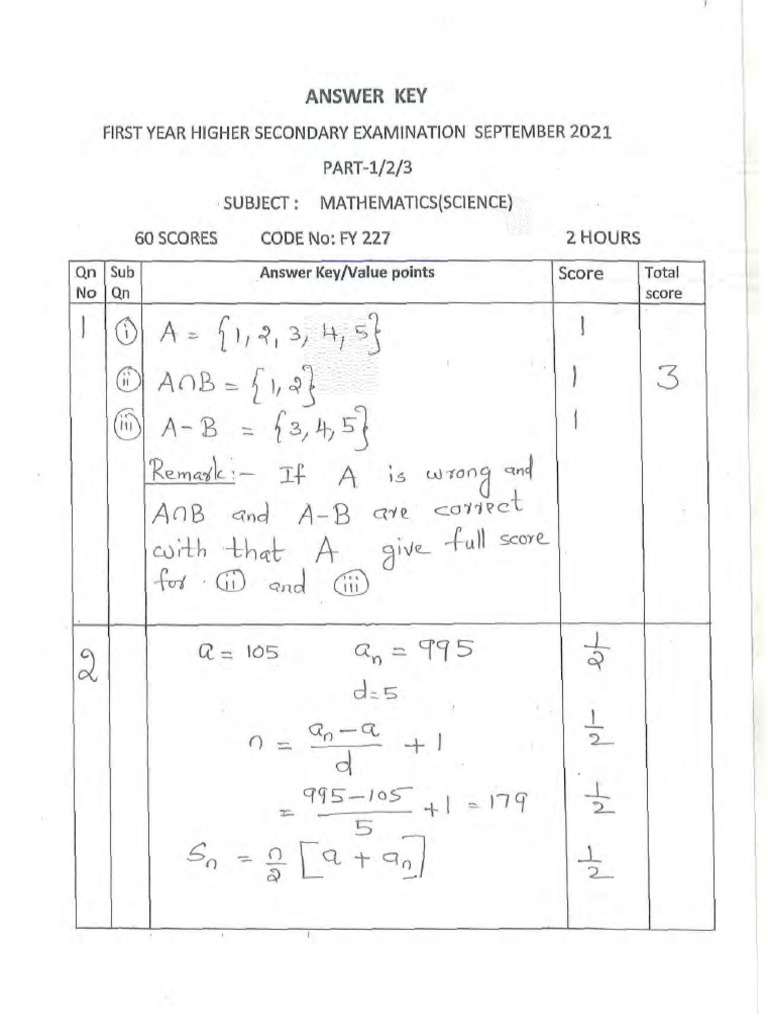 ANSWER KEY
FIRST YEAR HIGHER SECONDARY EXAMINATION SEPTEMBER 2021
PART-1/2/3
SUBJECT : MATHEMATICS(SCIENCE)
60 SCORES CODE No: FY 227 2 HOURS
Qn No Sub Qn Answer Key/Value points Score Total score
1 (i) A = {1, 2, 3, 4, 5} 1
(ii) A∩B = {1, 2} 1 3
(iii) A - B = {3, 4, 5} 1
Remark:- If A is wrong and
A∩B and A-B are correct
with that A give full score
for (ii) and (iii)
2 a = 105 aₙ = 995 1/2
d=5
n = (aₙ - a)/d + 1 1/2
= (995-105)/5 + 1 = 179 1/2
Sₙ = n/2 [a + aₙ] 1/2